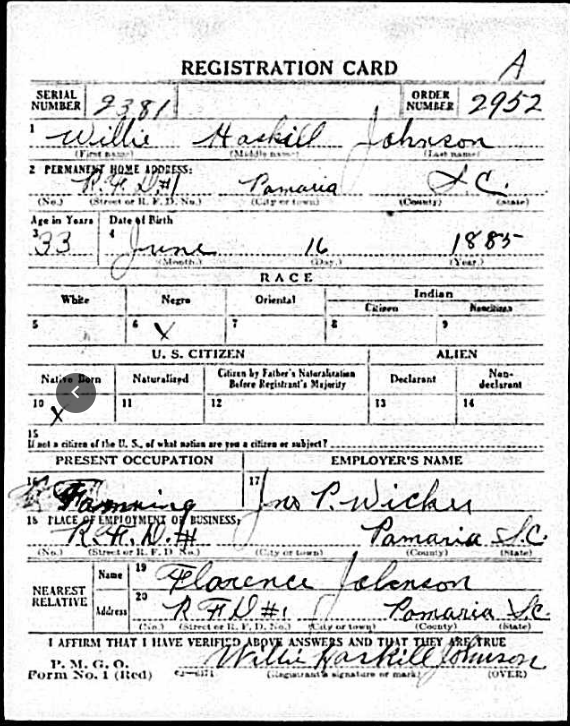 REGISTRATION CARD A
SERIAL NUMBER 2381 ORDER NUMBER 2952
1 Willie Haskill Johnson
(First name) (Middle name) (Last name)
2 PERMANENT HOME ADDRESS:
R.F.D#1 Pomaria S.C.
(No.) (Street or R. F. D. No.) (City or town) (County) (State)
Age in Years Date of Birth
3 33 4 June 16 1885
(Month.) (Day.) (Year.)
RACE
White Negro Oriental Indian
Citizen Noncitizen
5 6 X 7 8 9
U. S. CITIZEN ALIEN
Native Born Naturalized Citizen by Father's Naturalization Before Registrant's Majority Declarant Non-declarant
10 X 11 12 13 14
15
If not a citizen of the U. S., of what nation are you a citizen or subject?
PRESENT OCCUPATION EMPLOYER'S NAME
16 Farming 17 Jno P. Wicker
18 PLACE OF EMPLOYMENT OR BUSINESS:
R.F.D.#1 Pomaria S.C.
(No.) (Street or R. F. D. No.) (City or town) (County) (State)
NEAREST RELATIVE Name 19 Florence Johnson
Address 20 R.F.D #1 Pomaria S.C.
(No.) (Street or R. F. D. No.) (City or town) (County) (State)
I AFFIRM THAT I HAVE VERIFIED ABOVE ANSWERS AND THAT THEY ARE TRUE
P. M. G. O.
Form No. 1 (Red) Willie Haskill Johnson
(Registrant's signature or mark) (OVER)